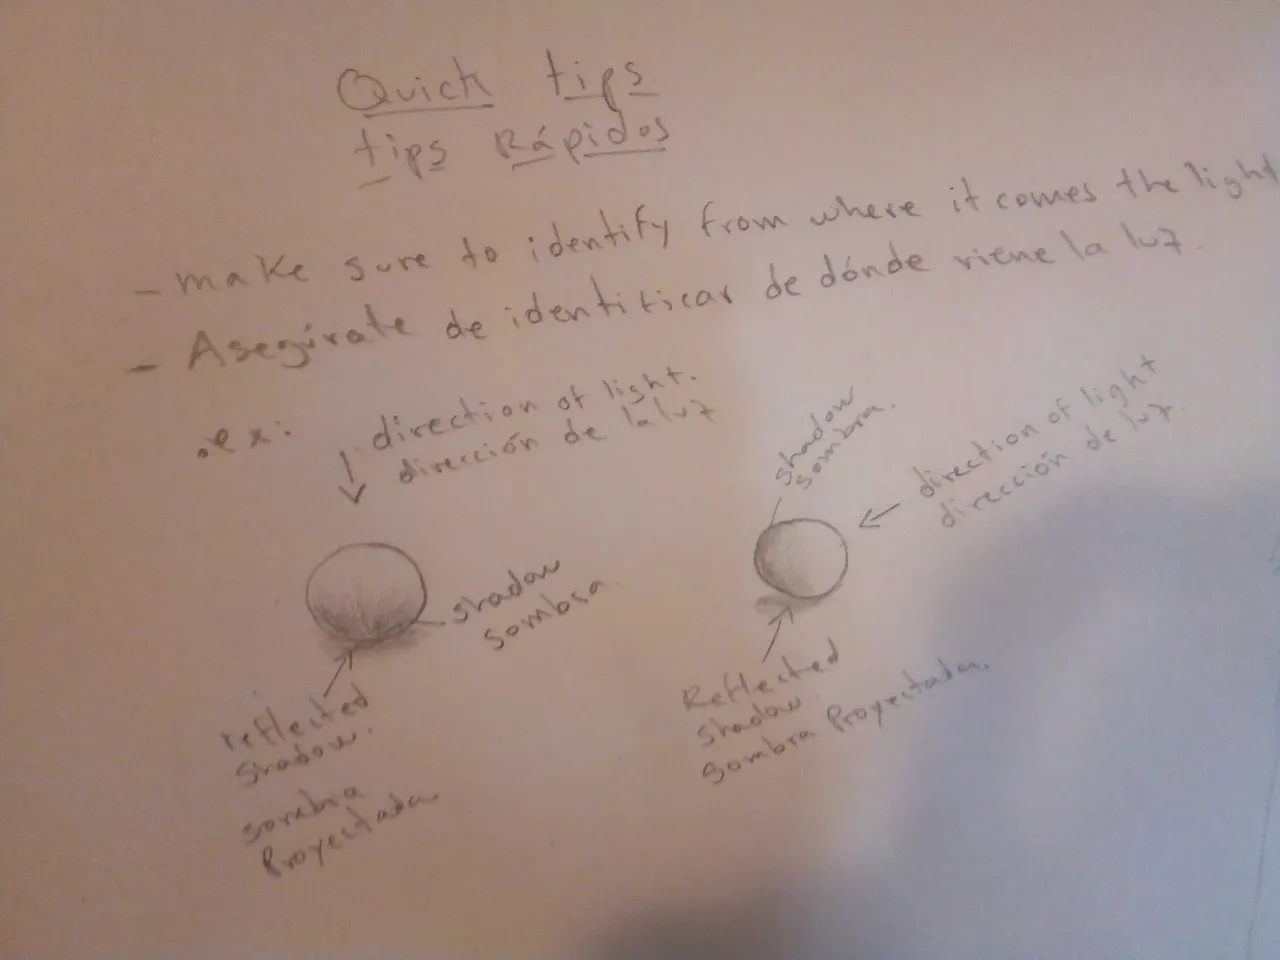 Quick tips
tips Rápidos
- make sure to identify from where it comes the light
- Asegúrate de identificar de dónde viene la luz.
.ex:
direction of light.
dirección de la luz
shadow
sombra.
direction of light
dirección de luz.
shadow
sombra.
reflected
shadow.
sombra
Proyectada
Reflected
shadow.
sombra Proyectada.